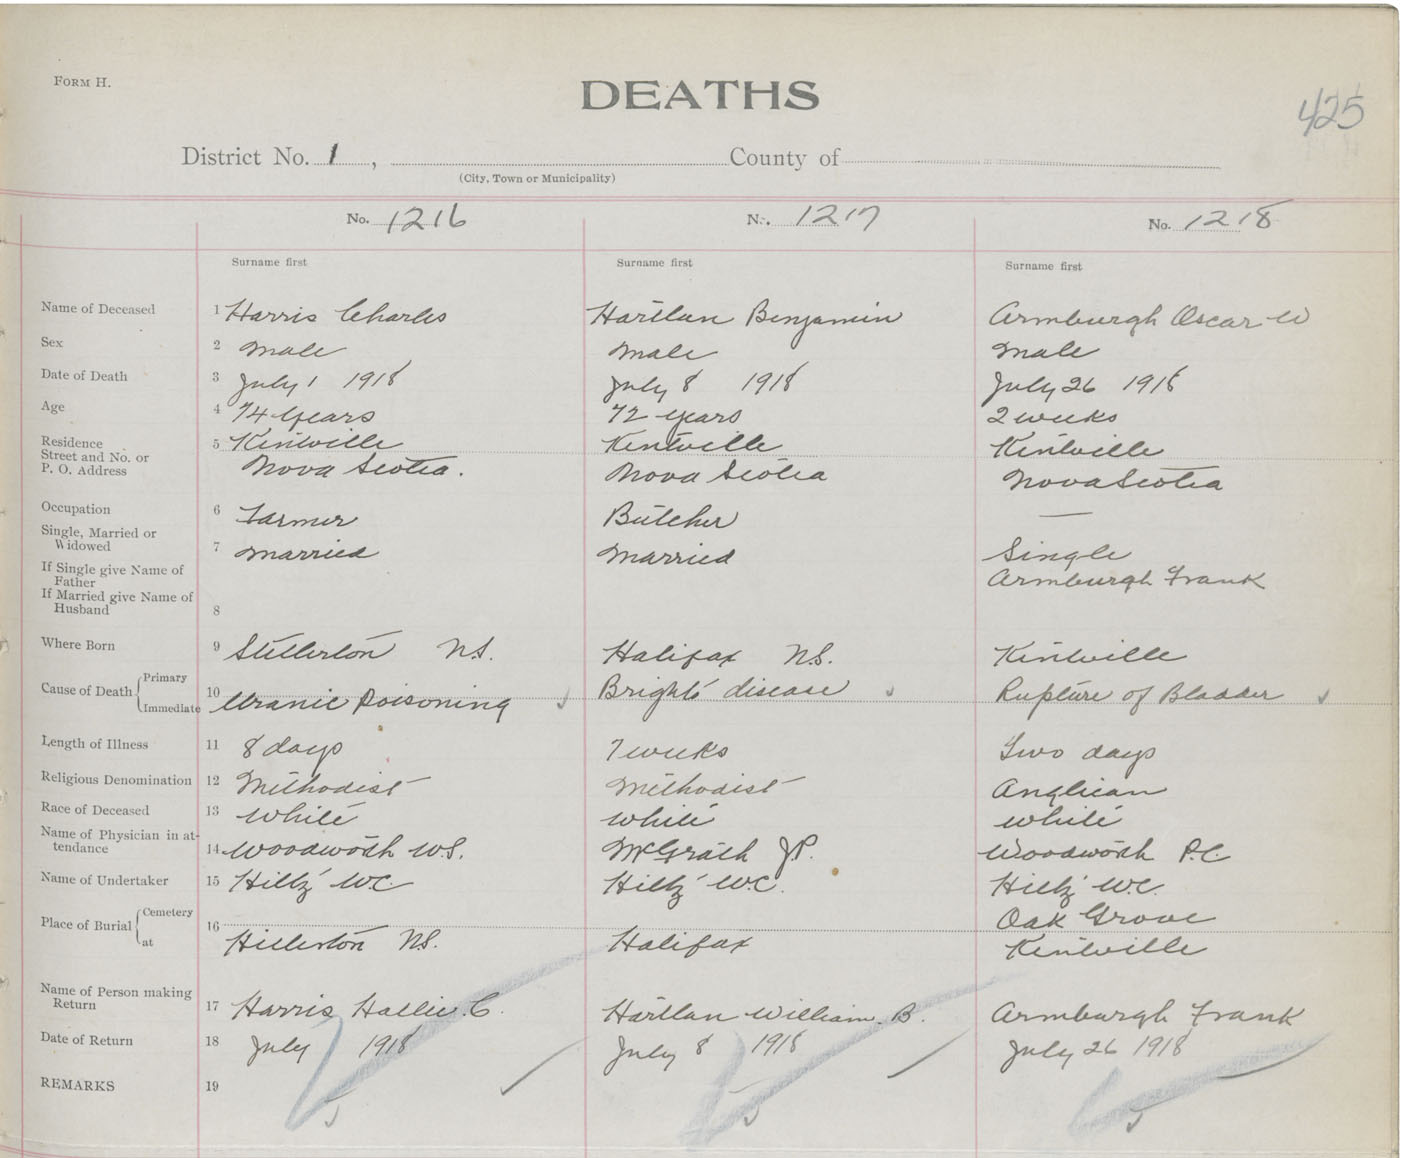 FORM H.
DEATHS
425
District No. 1, County of
(City, Town or Municipality)
No. 1216 No. 1217 No. 1218
Surname first Surname first Surname first
Name of Deceased 1 Harris Charles Hartlan Benjamin Armburgh Oscar W
Sex 2 Male Male Male
Date of Death 3 July 1 1918 July 8 1918 July 26 1918
Age 4 74 years 72 years 2 weeks
Residence 5 Kentville Kentville Kentville
Street and No. or
P. O. Address Nova Scotia. Nova Scotia Nova Scotia
Occupation 6 Farmer Butcher —
Single, Married or
Widowed 7 Married Married Single
If Single give Name of
Father Armburgh Frank
If Married give Name of
Husband 8
Where Born 9 Stellerton N.S. Halifax N.S. Kentville
Cause of Death { Primary
Immediate 10 Uranic Poisoning Bright's disease Rupture of Bladder
Length of Illness 11 8 days 7 weeks Two days
Religious Denomination 12 Methodist Methodist Anglican
Race of Deceased 13 White White White
Name of Physician in at-
tendance 14 Woodworth W.S. McGrath J.P. Woodworth P.C.
Name of Undertaker 15 Hiltz W.C. Hiltz W.C. Hiltz W.C.
Place of Burial { Cemetery 16 Oak Grove
at Hillerton N.S. Halifax Kentville
Name of Person making
Return 17 Harris Hallie. C. Hartlan William. B. Armburgh Frank
Date of Return 18 July 1918 July 8 1918 July 26 1918
REMARKS 19